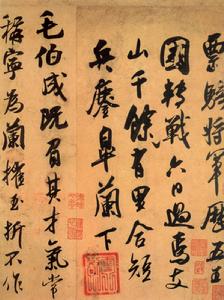 票姚將軍歷五
國轉戰六日過焉支
山千餘有里合短
兵鏖皐蘭下
毛伯成既負其才氣常
稱寧為蘭摧玉折不作